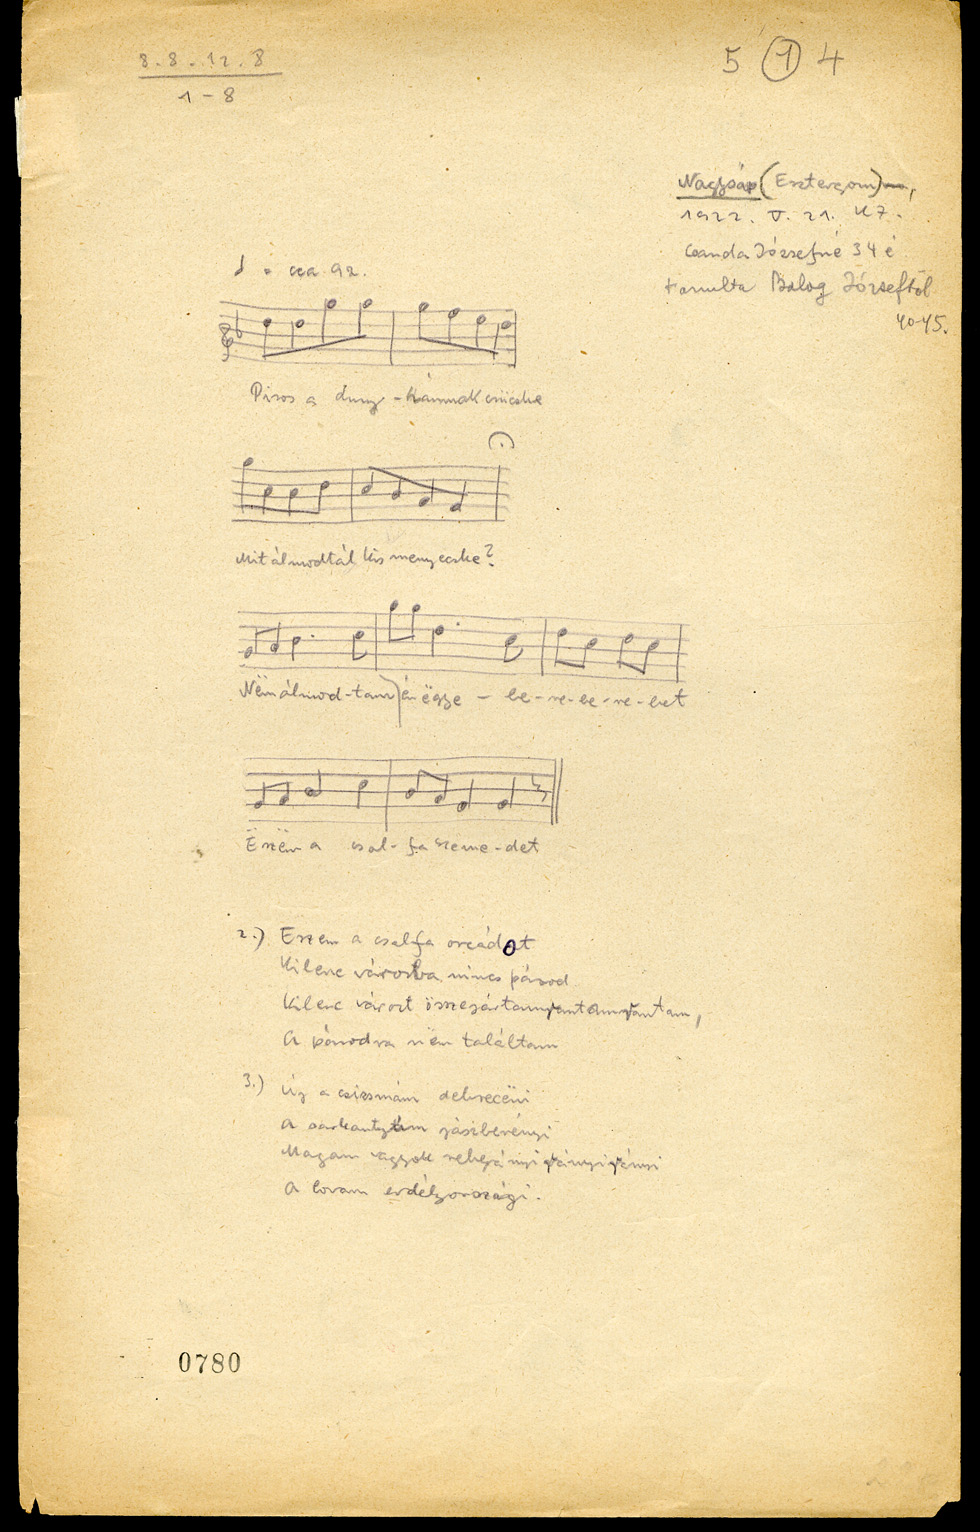 8.8.12.8
1-8
5 1 4
Nagysáp (Esztergom),
1922. V. 21. K7.
Csanda Józsefné 34 é
tanulta Balog Józseftől
40-45.
= cca 92.
Piros a duny-hámnak csücske
Mit álmodtál kis menyecske?
Nëm álmod-tam én ëgye - be-re-be-re-bet
Ëszëm a csal-fa szeme-det
2.) Eszem a csalfa orcádot
Kilenc városba nincs párod
Kilenc várost összejártam
A párodra nëm találtam
3.) Új a csizmám debrecëni
A sarkantyúm jászberényi
Magam vagyok
A lovam erdélyországi.
0780